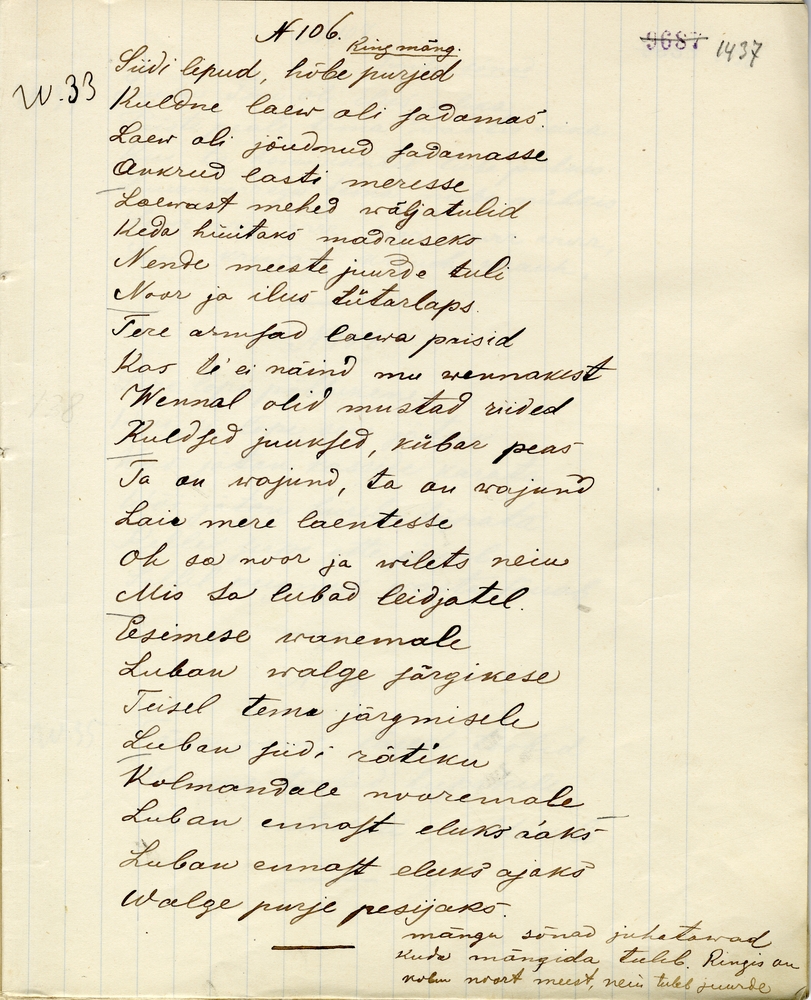 N 106.
Ring mäng.
9687 1437
W. 33
Siidi lipud, hõbe purjed
Kuldne laew oli sadamas.
Laew oli jõudnud sadamasse
Ankrud lasti meresse
Laewast mehed wäljatulid
Keda hüütaks madruseks
Nende meeste juurde tuli
Noor ja ilus tütarlaps.
Tere armsad laewa poisid
Kas te ei näind mu wennakest
Wennal olid mustad riided
Kuldsed juuksed, kübar peas
Ta on wajund, ta on wajund
Laia mere laentesse
Oh sa noor ja wilets neiu
Mis sa lubad leidjatel.
Eesimese wanemale
Luban walge särgikese
Teisel tema järgmisele
Luban siidi rätiku
Kolmandale nooremale
Luban ennast eluks aaks
Luban ennast eluks ajaks
Walge purje pesijaks.
mängu sõnad juhatawad
kuda mängida tuleb. Ringis on
kolm noort meest, neiu tuleb juurde